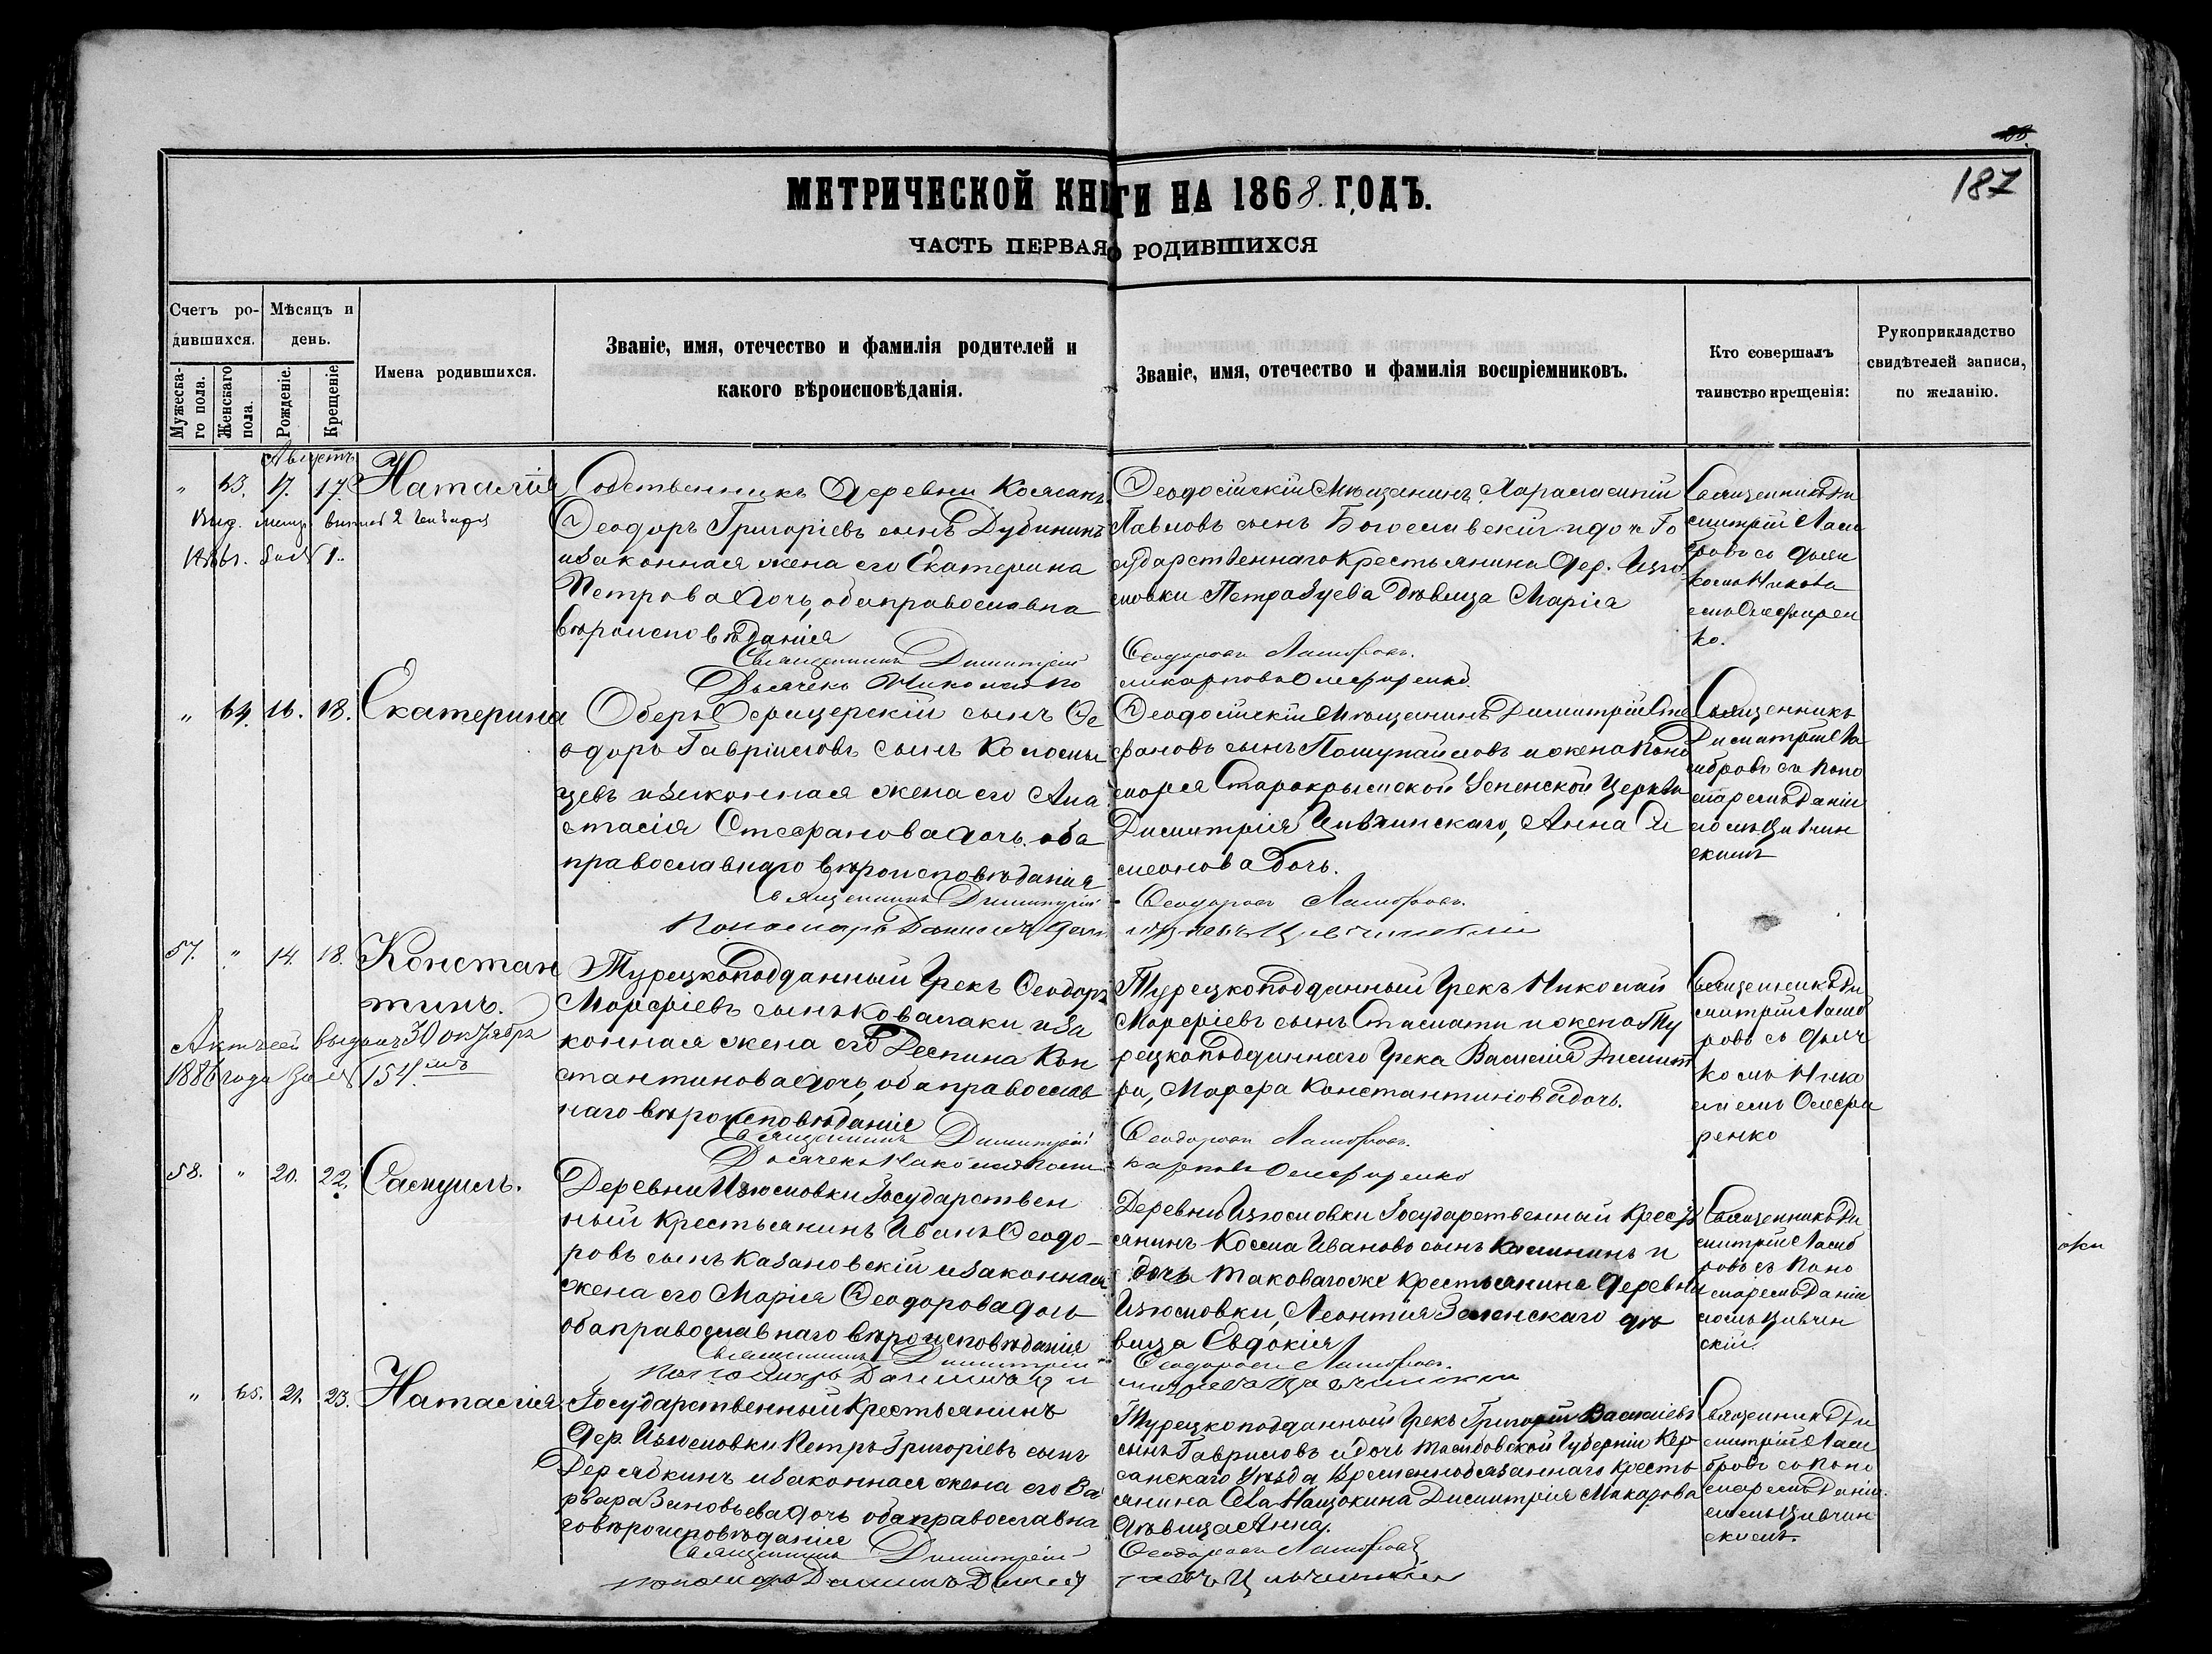 187
МЕТРИЧЕСКОЙ КНИГИ НА 1868. ГОДЪ.
ЧАСТЬ ПЕРВАЯ О РОДИВШИХСЯ
Счетъ ро-
дившихся.
Мѣсяцъ и
день.
Мужеска-
го пола.
Женскаго
пола.
Рожденіе.
Крещеніе
Имена родившихся.
Званіе, имя, отечество и фамилія родителей и
какого вѣроисповѣданія.
Званіе, имя, отечество и фамилія воспріемниковъ.
Кто совершалъ
таинство крещенія:
Рукоприкладство
свидѣтелей записи,
по желанію.
Августъ
" 63. 17. 17. Наталія
Собственникъ Деревни
Ѳеодоръ Григоріевъ сынъ Дубининъ
и законная жена его Екатерина
Петрова дочь, оба православна
вѣроисповѣданія
Ѳеодосійскій Мѣщанинъ Харалампій
Павловъ сынъ Богославскій и дочь Го
сударственнаго Крестьянина Дер. Изю
мовки Петра Зуева Дѣвица Марія
Священникъ Ди
митрій Лам
бровъ съ дьяч
комъ Никола
емъ Олефирен
ко.
Священникъ Димитрій Ѳеодоровъ Ламбровъ.
Дьячекъ Николай По ликарповъ Олефиренко.
" 64. 16. 18. Екатерина
Оберъ Офицерскій сынъ Ѳе
одоръ Гавріиловъ сынъ
цевъ и законная жена его Ана
стасія Стефанова дочь, оба
православнаго вѣроисповѣданія
Ѳеодосійскій Мѣщанинъ Димитрій Сте
фановъ сынъ и жена Поно
маря Старокрымской Успенской Церкви
Димитрія Цивчинскаго, Анна Си
меонова дочь.
Священникъ
Димитрій Ла
мбровъ съ Поно
маремъ Даніи
ломъ Цивчин
скимъ
Священникъ Димитрій Ѳеодоровъ Ламбровъ.
Пономарь Даниилъ Дим
57. " 14. 18. Констан
тинъ.
Турецкоподданный Грекъ Ѳеодоръ
Морфіевъ сынъ Ковалаки и за
конная жена его Деспина Кон
стантинова дочь, оба православ
наго вѣроисповѣданія
Турецкоподданный Грекъ Николай
Морфіевъ сынъ Стаматии и жена Ту
рецкоподданнаго Грека Василія Димит
ри, Марфа Константинова дочь.
Священникъ Ди
митрій Ламб
ровъ съ дьяч
комъ Нико
лаемъ Олефи
ренко
выданъ 30 октября
1886 года за № 154
Священникъ Димитрій Ѳеодоровъ Ламбровъ.
Дьячекъ Николай Поли карповъ Олефиренко
58. " 20. 22. Самуилъ.
Деревни Изюмовки Государствен
ный Крестьянинъ Иванъ Ѳеодо-
ровъ сынъ Казановскій и законная
жена его Марія Ѳеодорова дочь
оба православнаго вѣроисповѣданія
Деревни Изюмовки Государственный Кресть
янинъ Косма Ивановъ сынъ Калининъ и
дочь таковаго же крестьянина Деревни
Изюмовки, Леонтія Зеленскаго дѣ
вица Евдокія
Священникъ Ди
митрій Ламб
ровъ съ Поно
маремъ Даніи
ломъ Цивчин
скій.
Священникъ Димитрій Ѳеодоровъ Ламбровъ.
" 65. 21. 23. Наталія
Государственный Крестьянинъ
Дер. Изюмовки Петръ Григоріевъ сынъ
Дерябкинъ и законная жена его Ва
рвара Зиновьева дочь оба православна
го вѣроисповѣданія
Турецкоподданный Грекъ Григорій Василіевъ
сынъ Гавриловъ и дочь Тамбовской Губерніи Кир
санскаго Уѣзда Временнообязаннаго Кресть
янина Нащокина Димитрія Макарова
Дѣвица Анна.
Священникъ Ди
митрій Лам
бровъ съ Поно
маремъ Даніи
ломъ Цивчин
скимъ.
Священникъ Димитрій Ѳеодоровъ Ламбровъ